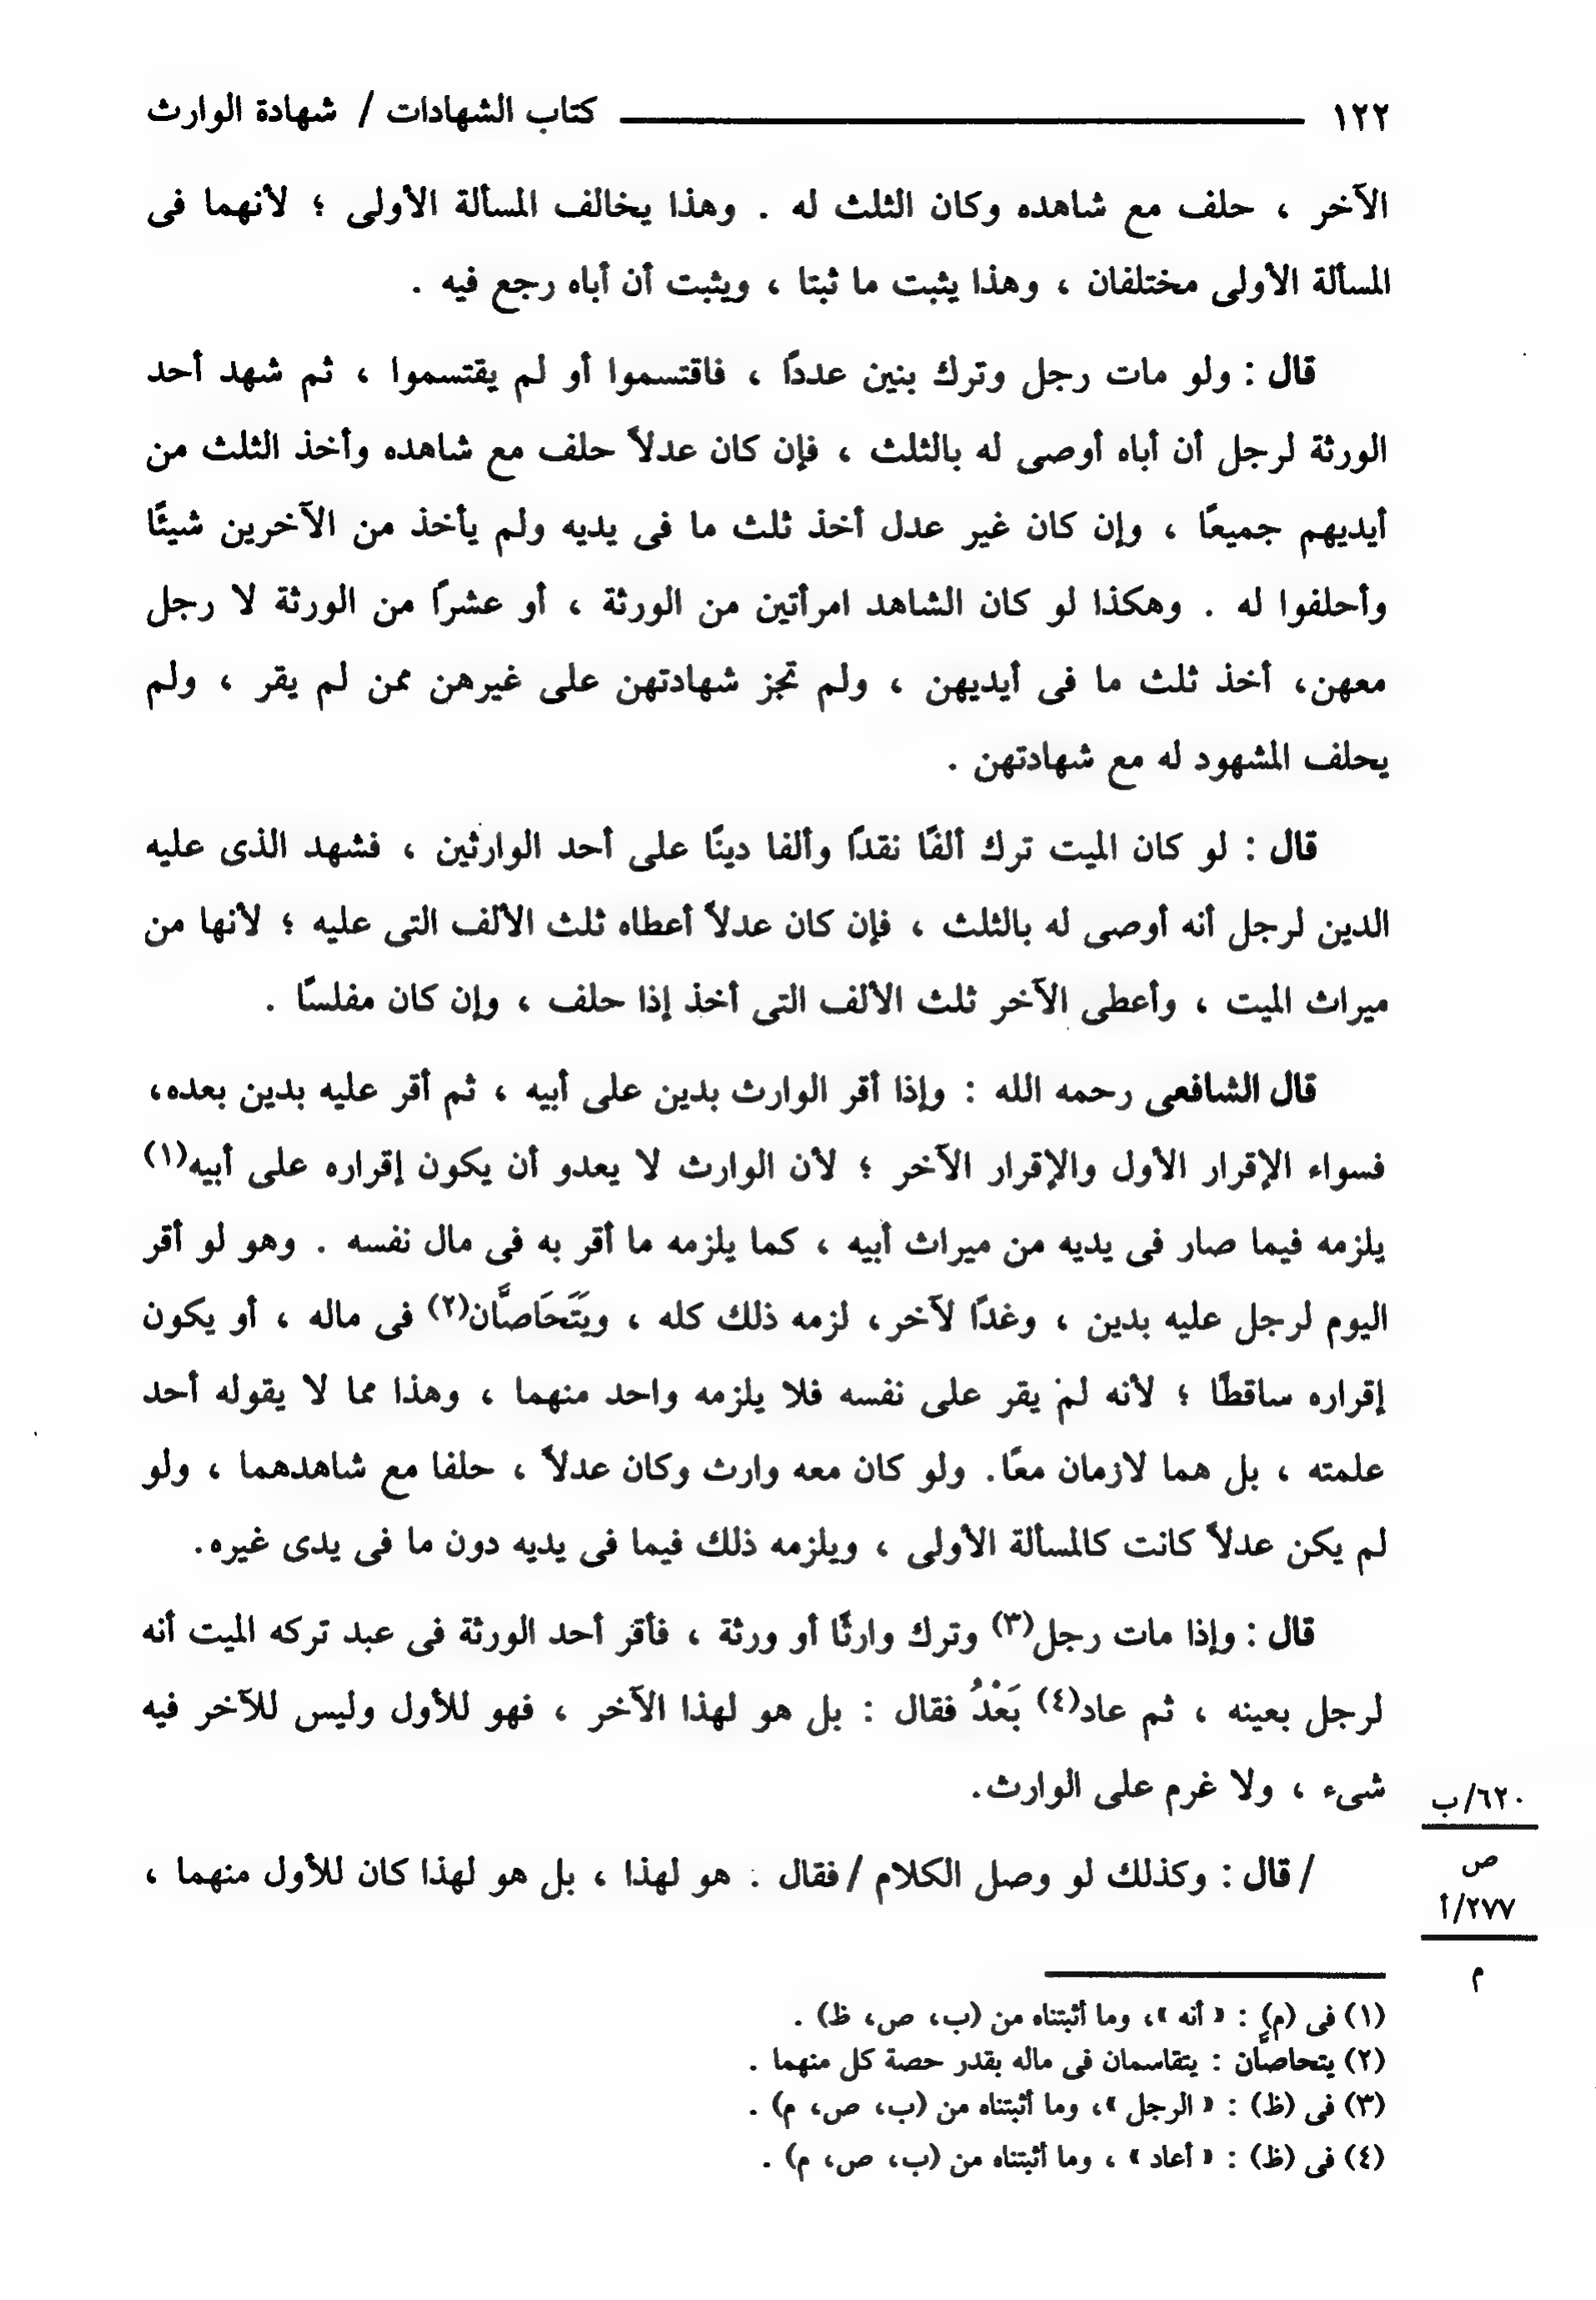 ١٢٢ ـــــــــــــــــ كتاب الشهادات / شهادة الوارث
الآخر ، حلف مع شاهده وكان الثلث له . وهذا يخالف المسألة الأولى ؛ لأنهما فى
المسألة الأولى مختلفان ، وهذا يثبت ما ثبتا ، ويثبت أن أباه رجع فيه .
قال : ولو مات رجل وترك بنين عددًا ، فاقتسموا أو لم يقتسموا ، ثم شهد أحد
الورثة لرجل أن أباه أوصى له بالثلث ، فإن كان عدلاً حلف مع شاهده وأخذ الثلث من
أيديهم جميعًا ، وإن كان غير عدل أخذ ثلث ما فى يديه ولم يأخذ من الآخرين شيئًا
وأحلفوا له . وهكذا لو كان الشاهد امرأتين من الورثة ، أو عشرًا من الورثة لا رجل
معهن، أخذ ثلث ما فى أيديهن ، ولم تجز شهادتهن على غيرهن ممن لم يقر ، ولم
يحلف المشهود له مع شهادتهن .
قال : لو كان الميت ترك ألفًا نقدًا وألفا دينًا على أحد الوارثين ، فشهد الذى عليه
الدين لرجل أنه أوصى له بالثلث ، فإن كان عدلاً أعطاه ثلث الألف التى عليه ؛ لأنها من
ميراث الميت ، وأعطى الآخر ثلث الألف التى أخذ إذا حلف ، وإن كان مفلسًا .
قال الشافعى رحمه الله : وإذا أقر الوارث بدين على أبيه ، ثم أقر عليه بدين بعده،
فسواء الإقرار الأول والإقرار الآخر ؛ لأن الوارث لا يعدو أن يكون إقراره على أبيه(١)
يلزمه فيما صار فى يديه من ميراث أبيه ، كما يلزمه ما أقر به فى مال نفسه . وهو لو أقر
اليوم لرجل عليه بدين ، وغدًا لآخر، لزمه ذلك كله ، ويَتَحَاصَّان(٢) فى ماله ، أو يكون
إقراره ساقطًا ؛ لأنه لم يقر على نفسه فلا يلزمه واحد منهما ، وهذا مما لا يقوله أحد
علمته ، بل هما لازمان معًا. ولو كان معه وارث وكان عدلاً ، حلفا مع شاهدهما ، ولو
لم يكن عدلاً كانت كالمسألة الأولى ، ويلزمه ذلك فيما فى يديه دون ما فى يدى غيره.
قال : وإذا مات رجل(٣) وترك وارثًا أو ورثة ، فأقر أحد الورثة فى عبد تركه الميت أنه
لرجل بعينه ، ثم عاد(٤) بَعْدُ فقال : بل هو لهذا الآخر ، فهو للأول وليس للآخر فيه
شىء ، ولا غرم على الوارث.
٦٢٠/ب
ص
٢٧٧/أ
م
/ قال : وكذلك لو وصل الكلام / فقال : هو لهذا ، بل هو لهذا كان للأول منهما ،
(١) فى (م) : « أنه »، وما أثبتناه من (ب، ص، ظ) .
(٢) يتحاصَّان : يتقاسمان فى ماله بقدر حصة كل منهما .
(٣) فى (ظ) : « الرجل »، وما أثبتناه من (ب، ص، م) .
(٤) فى (ظ) : « أعاد » ، وما أثبتناه من (ب، ص، م) .